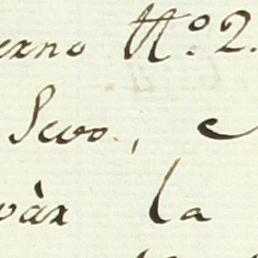 erno N.º 2.
Sevo.,
vàr la